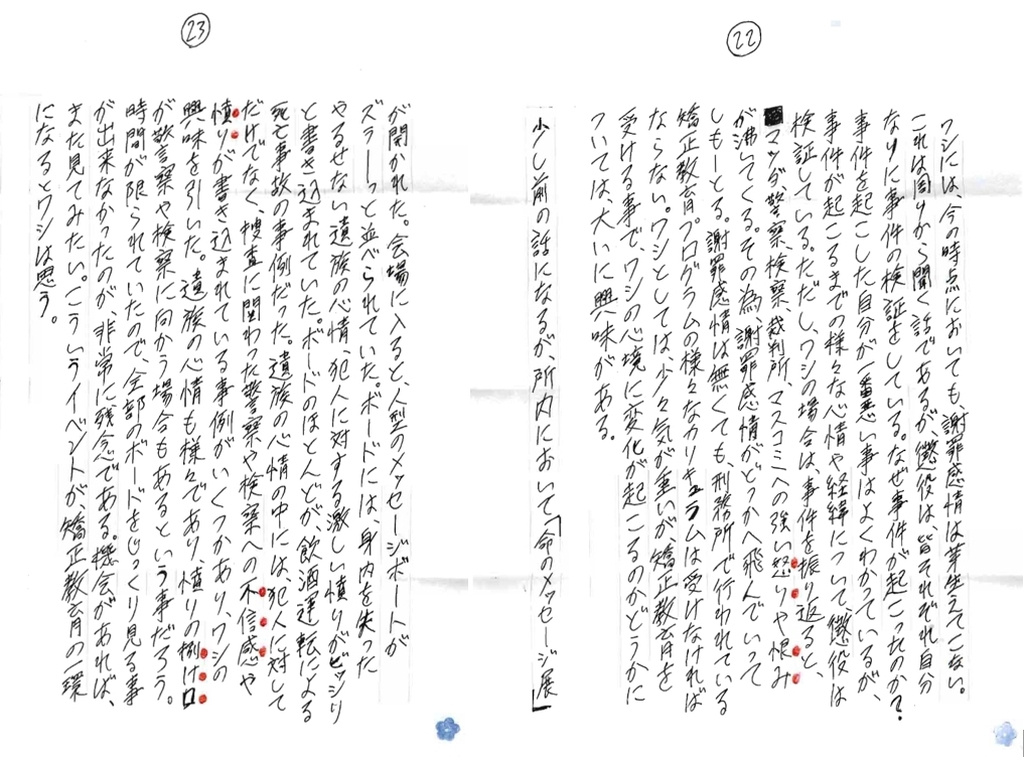 ㉒
ワシには、今の時点においても、謝罪感情は芽生えてこない。
これは周りから聞く話であるが、懲役は、皆それぞれ自分
なりに事件の検証をしている。なぜ事件が起こったのか?
事件を起こした自分が一番悪い事はよくわかっているが、
事件が起こるまでの様々な心情や経緯について、懲役は
検証している。ただし、ワシの場合は、事件を振り返ると、
マッダ、警察、検察、裁判所、マスコミへの強い怒りや恨み
が沸いてくる。その為、謝罪感情がどっかへ飛んでいって
しもーとる。謝罪感情は無くても、刑務所で行われている
矯正教育プログラムの様々なカリキュラムは受けなければ
ならない。ワシとしては、少々気が重いが、矯正教育を
受ける事で、ワシの心境に変化が起こるのかどうかに
ついては、大いに興味がある。
少し前の話になるが、所内において「命のメッセージ展」
㉓
が開かれた。会場に入ると、人型のメッセージボードが
ズラーっと並べられていた。ボードには、身内を失った
やるせない遺族の心情、犯人に対する激しい憤りがビッシリ
と書き込まれていた。ボードのほとんどが、飲酒運転による
死亡事故の事例だった。遺族の心情の中には、犯人に対して
だけでなく、捜査に関わった警察や検察への不信感や
憤りが書き込まれている事例がいくつかあり、ワシの
興味を引いた。遺族の心情も様々であり、憤りの捌け口
が警察や検察に向かう場合もあるという事だろう。
時間が限られていたので、全部のボードをじっくり見る事
が出来なかったのが、非常に残念である。機会があれば、
また見てみたい。こういうイベントが、矯正教育の一環
になるとワシは思う。